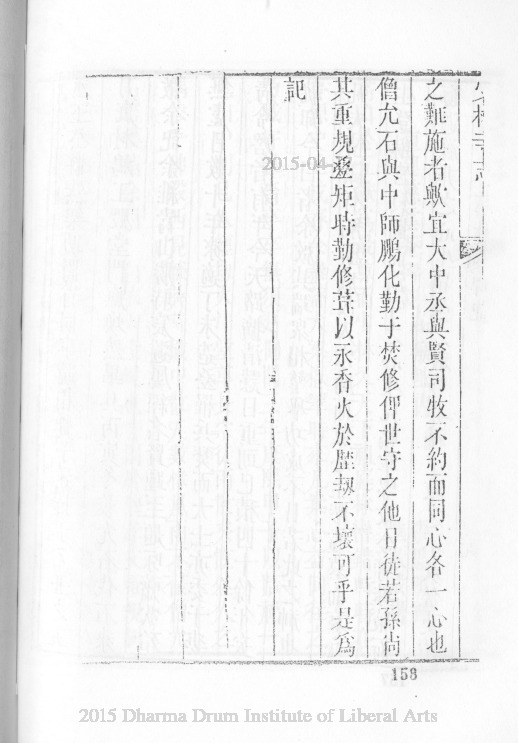 少林寺志
之難施者歟宜大中丞與賢司牧不約而同心各一心也
僧允石與中師鵬化勤于焚修俾世守之他日徒若孫尚
其重規疊矩時勤修葺以永香火於歷劫不壞可乎是爲
記
2015-04-
158
2015 Dharma Drum Institute of Liberal Arts